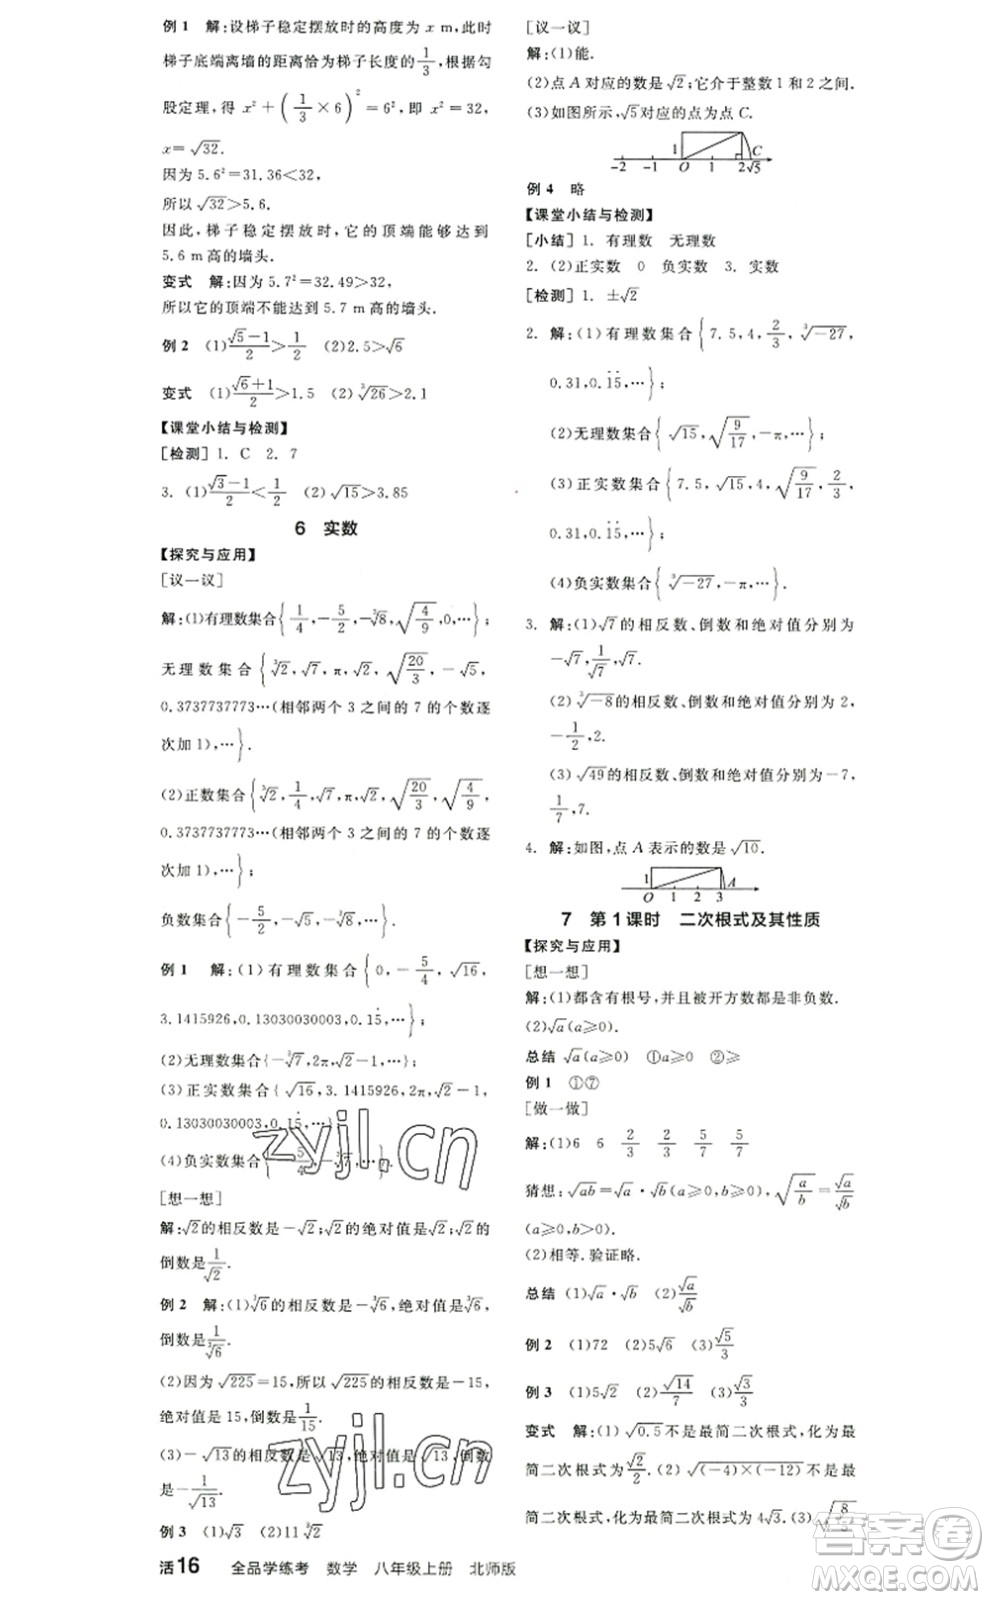 例 1　解:设梯子稳定摆放时的高度为 x m,此时
梯子底端离墙的距离恰为梯子长度的1/3,根据勾
股定理,得 x²+(1/3×6)²=6²,即 x²=32,
x=√32.
因为 5.6²=31.36<32,
所以√32>5.6.
因此,梯子稳定摆放时,它的顶端能够达到
5.6 m高的墙头.
变式　解:因为 5.7²=32.49>32,
所以它的顶端不能达到 5.7 m 高的墙头.
例 2　(1)(√5-1)/2>1/2　(2)2.5>√6
变式　(1)(√6+1)/2>1.5　(2)∛26>2.1
【课堂小结与检测】
[检测] 1. C　2. 7
3. (1)(√3-1)/2<1/2　(2)√15>3.85
6　实数
【探究与应用】
[议一议]
解:(1)有理数集合{1/4,-5/2,-∛8,√(4/9),0,…};
无理数集合{∛2,√7,π,√2,√(20/3),-√5,
0.3737737773…(相邻两个 3 之间的 7 的个数逐
次加 1),…}.
(2)正数集合{∛2,1/4,√7,π,√2,√(20/3),√(4/9),
0.3737737773…(相邻两个 3 之间的 7 的个数逐
次加 1),…}.
负数集合{-5/2,-∛8,-√5,…}.
例 1　解:(1)有理数集合{0,-5/4,√16,
3.1415926,0.13030030003,0.1̇5̇,…};
(2)无理数集合{-∛7,2π,√2-1,…};
(3)正实数集合{√16,3.1415926,2π,√2-1,
0.13030030003,0.1̇5̇,…};
(4)负实数集合{-5/4,-∛7,…}.
[想一想]
解:√2的相反数是-√2;√2的绝对值是√2;√2的
倒数是1/√2.
例 2　解:(1)∛6的相反数是-∛6,绝对值是∛6,
倒数是1/∛6.
(2)因为√225=15,所以√225的相反数是-15,
绝对值是 15,倒数是1/15.
(3)-√13的相反数是√13,绝对值是√13,倒数
是-1/√13.
例 3　(1)√3　(2)11∛2
活16　全品学练考　数学　八年级上册　北师版
[议一议]
解:(1)能.
(2)点 A 对应的数是√2;它介于整数 1 和 2 之间.
(3)如图所示,√5对应的点为点 C.
1 C
-2 -1 O 1 2 √5
例 4　略
【课堂小结与检测】
[小结] 1. 有理数　无理数
2. (2)正实数　0　负实数　3. 实数
[检测] 1. ±√2
2. 解:(1)有理数集合{7.5,4,2/3,∛-27,
0.31,0.1̇5̇,…};
(2)无理数集合{√15,√(9/17),-π,…};
(3)正实数集合{7.5,√15,4,√(9/17),2/3,
0.31,0.1̇5̇,…};
(4)负实数集合{∛-27,-π,…}.
3. 解:(1)√7的相反数、倒数和绝对值分别为
-√7,1/√7,√7.
(2)∛-8的相反数、倒数和绝对值分别为 2,
-1/2,2.
(3)√49的相反数、倒数和绝对值分别为-7,
1/7,7.
4. 解:如图,点 A 表示的数是√10.
1 A
O 1 2 3
7　第 1 课时　二次根式及其性质
【探究与应用】
[想一想]
解:(1)都含有根号,并且被开方数都是非负数.
(2)√a(a≥0).
总结　√a(a≥0)　①a≥0　②≥
例 1　①⑦
[做一做]
解:(1)6　6　2/3　2/3　5/7　5/7
猜想:√ab=√a·√b(a≥0,b≥0),√(a/b)=√a/√b
(a≥0,b>0).
(2)相等.验证略.
总结　(1)√a·√b　(2)√a/√b
例 2　(1)72　(2)5√6　(3)√5/3
例 3　(1)5√2　(2)√14/7　(3)√3/3
变式　解:(1)√0.5不是最简二次根式,化为最
简二次根式为√2/2.(2)√(-4)×(-12)不是最
简二次根式,化为最简二次根式为4√3.(3)√(8/3)
zyjl.cn
zyjl.cn
答案圈
MXQE.COM